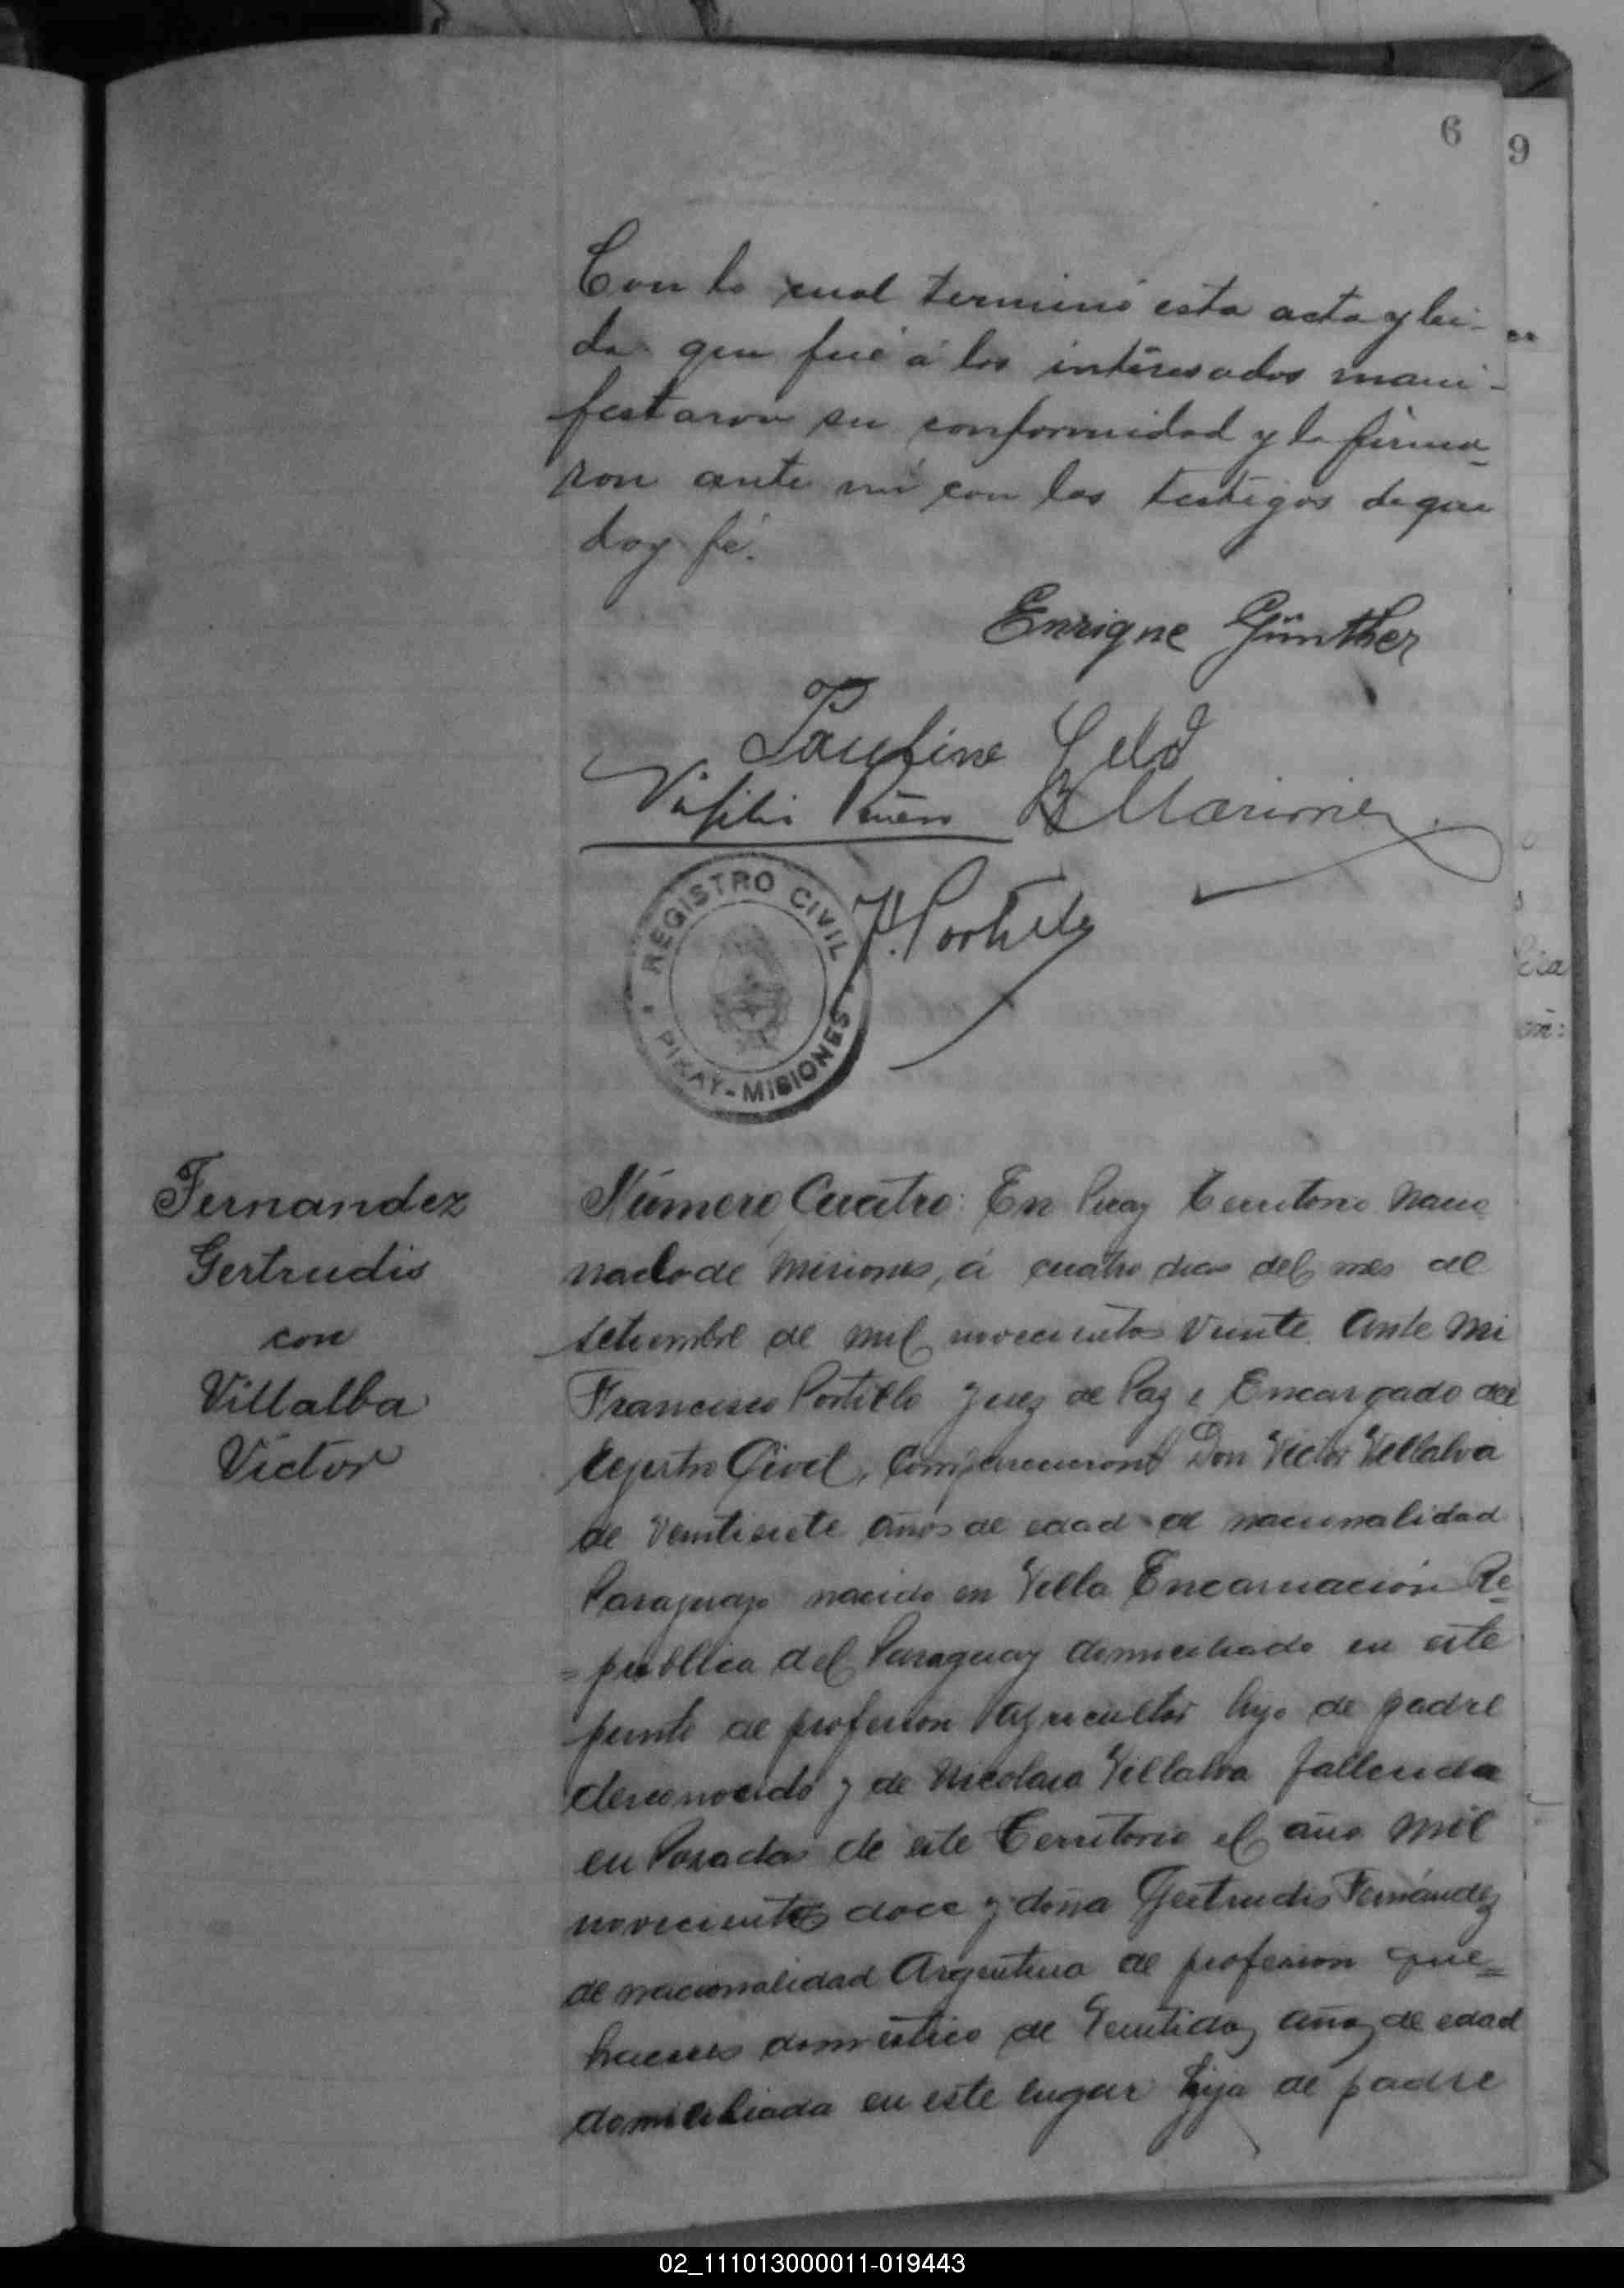 6
9
Con lo cual terminó esta acta y lei-
da que fué á los interesados mani-
festaron su conformidad y la firma-
ron ante mi con los testigos de que
doy fé.
Enrique Günther
Pauline Held
F. Portillo
REGISTRO CIVIL
PIRAY-MISIONES
Fernandez
Gertrudis
con
Villalba
Víctor
Número Cuatro: En Piray Territorio Nacio
nal de Misiones, á cuatro dias del mes de
setiembre de mil novecientos veinte Ante mi
Francisco Portillo Juez de Paz e Encargado del
Registro Civil, Comparecieron Don Victor Villalva
de Veintisiete años de edad de nacionalidad
Paraguayo nacido en Villa Encarnación Re=
=publica del Paraguay domiciliado en este
punto de profesion agricultor hijo de padre
desconocido y de Nicolasa Villalva fallecida
en Posadas de este Territorio el año mil
novecientos doce y doña Gertrudis Fernández
de nacionalidad Argentina de profesion que=
haceres domestico de Veintidos años de edad
domiciliada en este lugar hija de padre
02_111013000011-019443